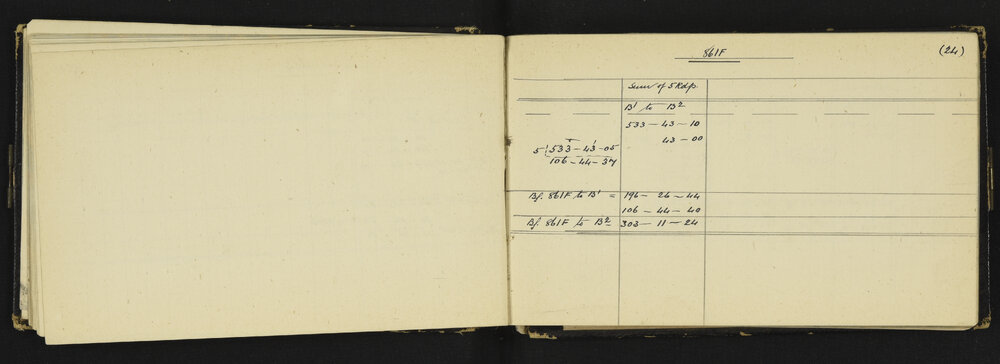 861F
(24)
Sum of 5 Rdgs.
B' to B²
533 - 43 - 10
43 - 00
5 | 533 - 43 - 05
106 - 44 - 37
Bg. 861F to B' = 196 - 26 - 44
106 - 44 - 40
Bg. 861F to B² 303 - 11 - 24